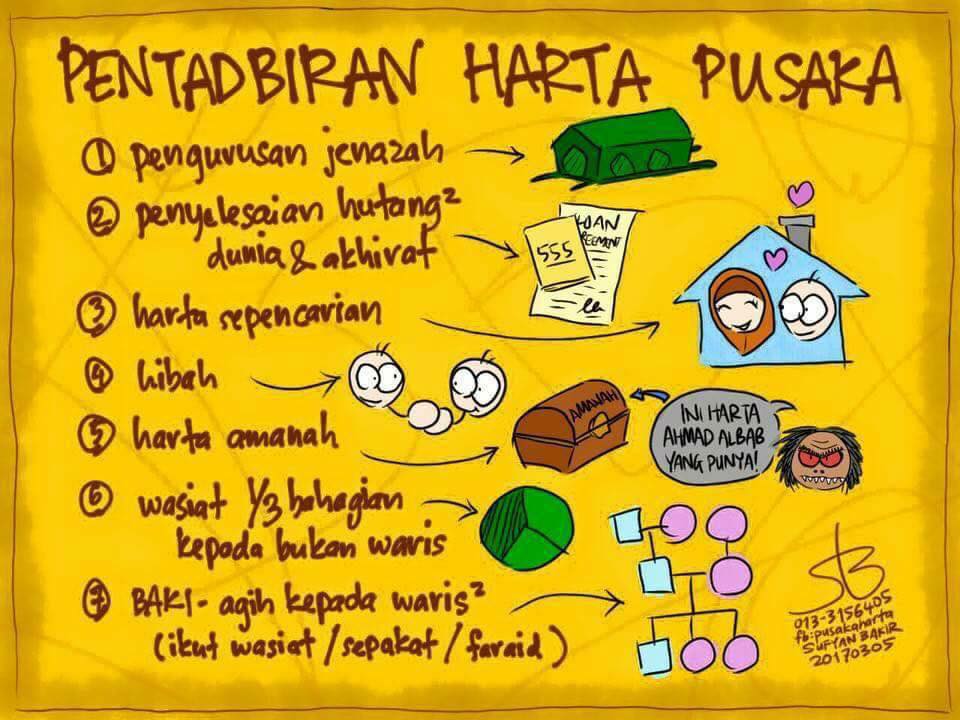 PENTADBIRAN HARTA PUSAKA
1 pengurusan jenazah
2 penyelesaian hutang²
dunia & akhirat
555
LOAN
REEMENT
3 harta sepencarian
4 hibah
5 harta amanah
AMANAH
INI HARTA
AHMAD ALBAB
YANG PUNYA!
6 wasiat 1/3 bahagian
kepada bukan waris
7 BAKI - agih kepada waris²
(ikut wasiat / sepakat / faraid)
SB
013-3156405
fb:pusakaharta
SUFYAN BAKIR
20170305